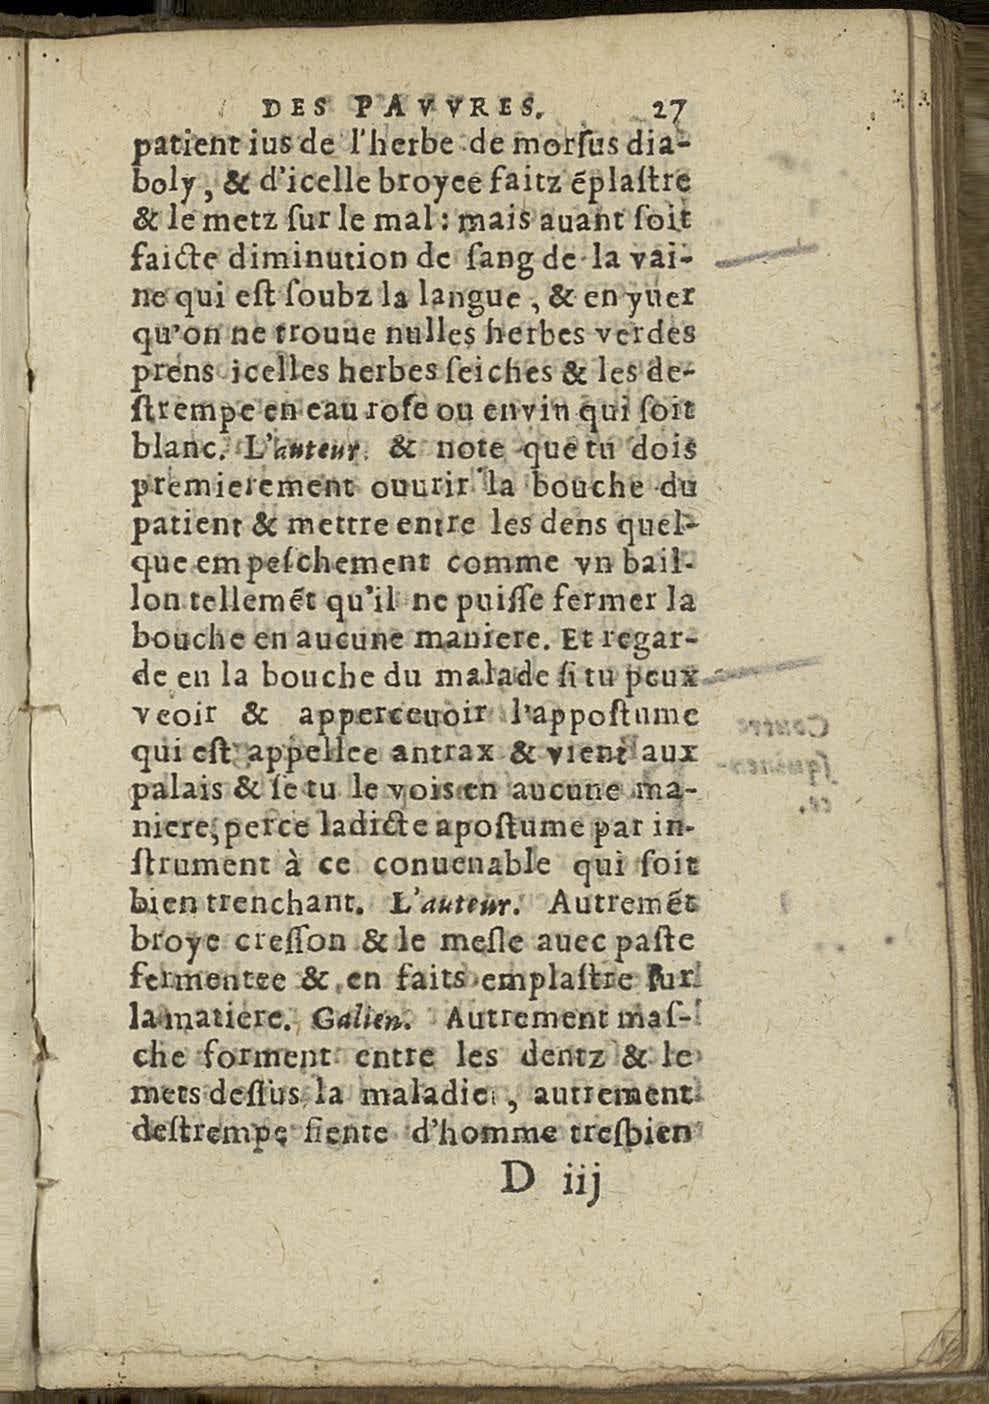 DES PAVVRES. 27
patient ius de l'herbe de morſus dia-
boly, & d'icelle broyee faitz ẽplaſtre
& le metz ſur le mal : mais auant ſoit
faicte diminution de ſang de la vai-
ne qui eſt ſoubz la langue, & en yuer
qu'on ne trouue nulles herbes verdes
prens icelles herbes ſeiches & les de-
ſtrempe en eau roſe ou en vin qui ſoit
blanc. L'auteur. & note que tu dois
premierement ouurir la bouche du
patient & mettre entre les dens quel-
que empeſchement comme vn bail-
lon tellemẽt qu'il ne puiſſe fermer la
bouche en aucune maniere. Et regar-
de en la bouche du malade ſi tu peux
veoir & apperceuoir l'appoſtume
qui eſt appellee antrax & vient aux
palais & ſe tu le vois en aucune ma-
niere, perce ladicte apoſtume par in-
ſtrument à ce conuenable qui ſoit
bien trenchant. L'auteur. Autremẽt
broye creſſon & le meſle auec paſte
fermentee & en faits emplaſtre ſur
la matiere. Galien. Autrement maſ-
che forment entre les dentz & le
mets deſſus la maladie, autrement
deſtrempe fiente d'homme treſbien
D iij